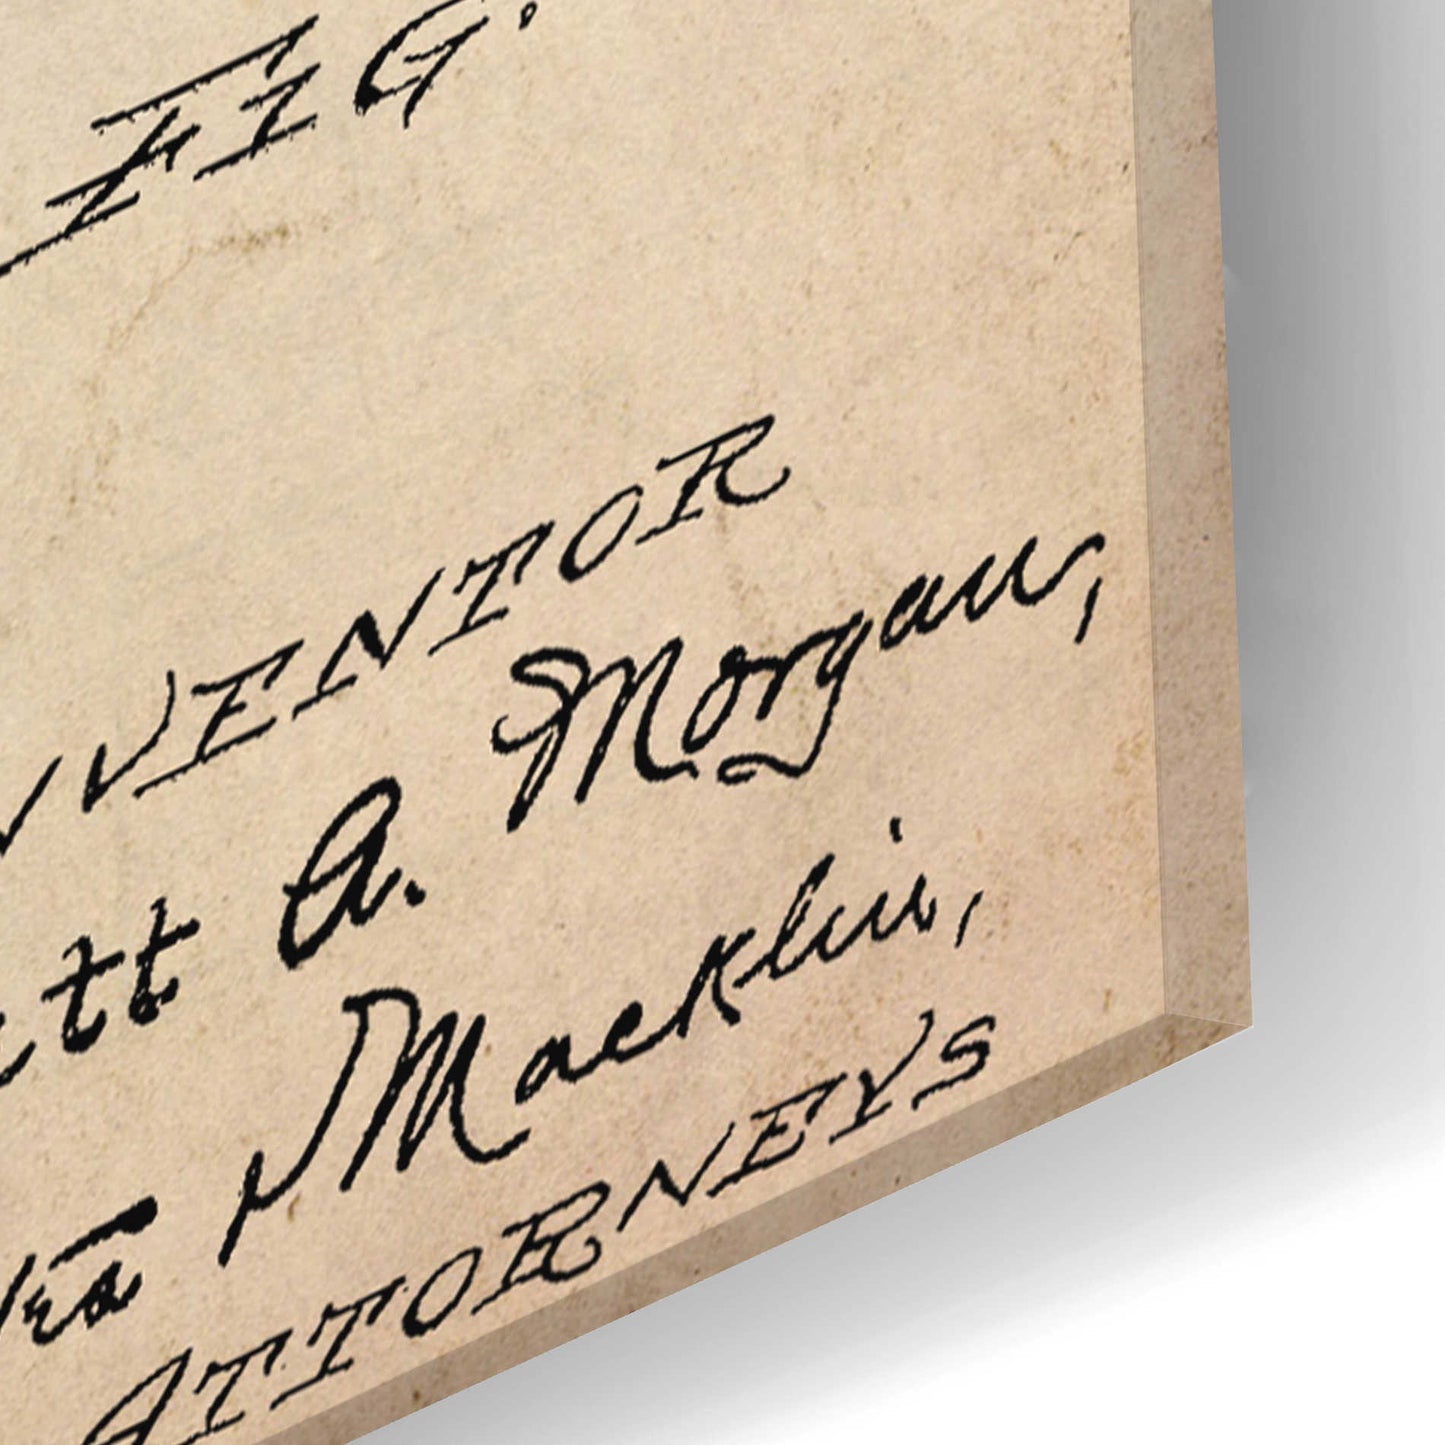 FIG.
INVENTOR
A. Morgan,
Macklin,
ATTORNEYS